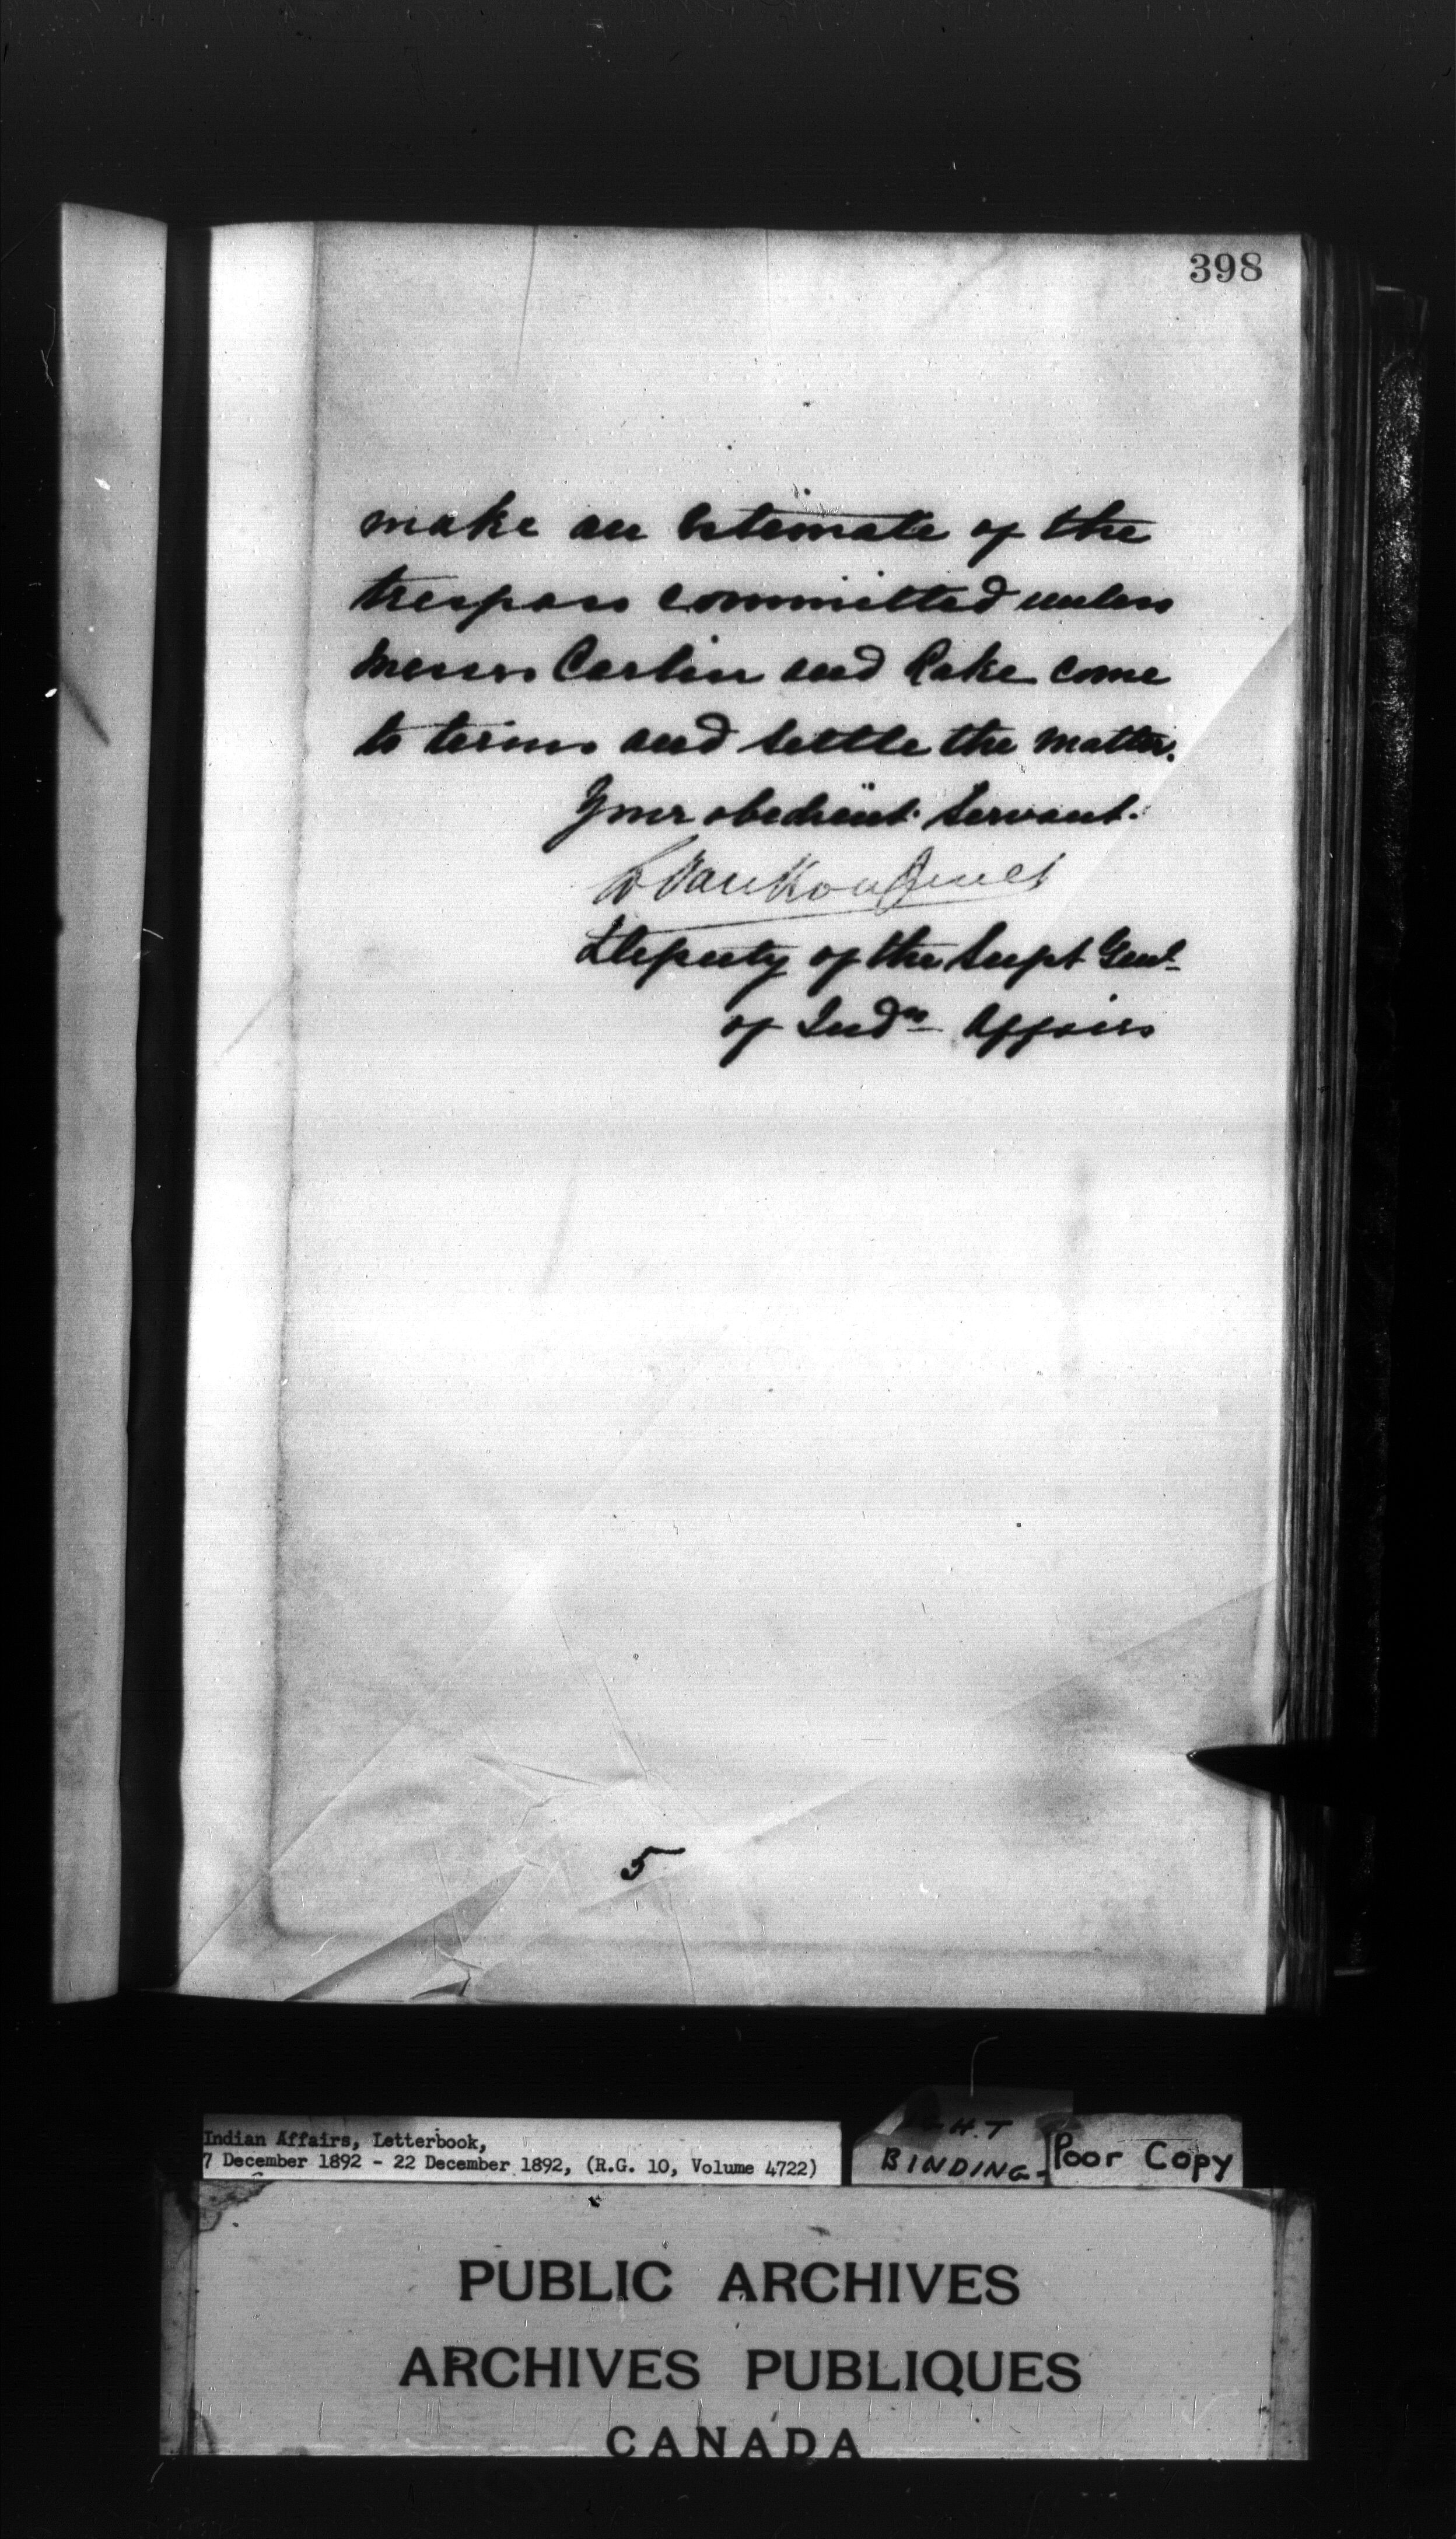 398
make an estimate of the
trespass committed unless
Messrs Carlin and Lake come
to terms and settle the matter.
Your obedient Servant.
L VanKoughnet
Deputy of the Supt Genl
of Indn Affairs
5
Indian Affairs, Letterbook,
7 December 1892 - 22 December 1892, (R.G. 10, Volume 4722)
BINDING
Poor Copy
PUBLIC ARCHIVES
ARCHIVES PUBLIQUES
CANADA